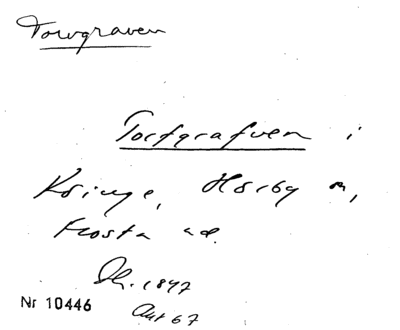 Torvgraven
Torfgrafven i
Köinge, Hörby sn,
Frosta hd.
1847
Nr 10446
Akt 67